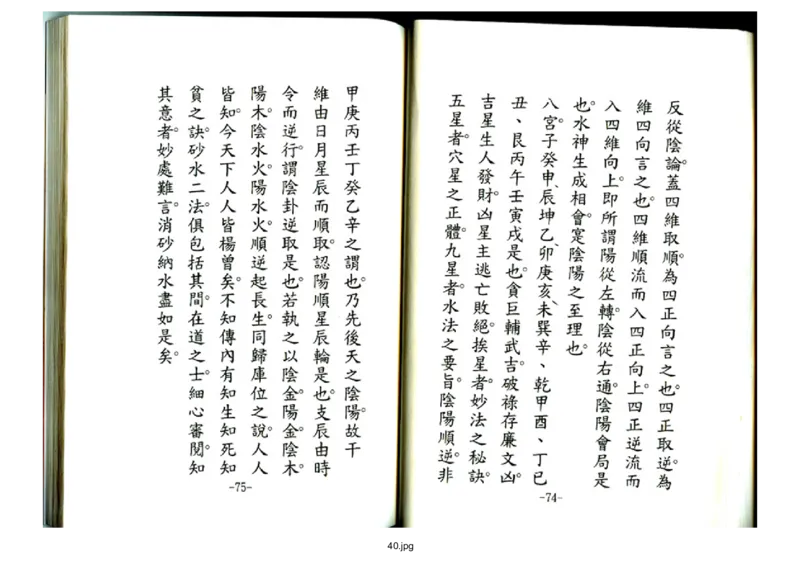 反從陰論。蓋四維取順。為四正向言之也。四正取逆。為
維四向言之也。四維順流而入四正向上。四正逆流而
入四維向上。即所謂陽從左轉。陰從右通。陰陽會局是
也。水神生成相會。寔陰陽之至理也。
八宮。子癸申、辰坤乙、卯庚亥、未巽辛、乾甲酉、丁巳
丑、艮丙午壬寅戌是也。貪巨輔武吉。破祿存廉文凶。
吉星生人發財。凶星主逃亡敗絕。挨星者。妙法之秘訣。
五星者。穴星之正體。九星者。水法之要旨。陰陽順逆。非
-74-
甲庚丙壬丁癸乙辛之謂也。乃先後天之陰陽。故干
維由日月星辰而順取。認陽順星辰輪是也。支辰由時
令而逆行。謂陰卦逆取是也。若執之以陰金。陽金。陰木。
陽木。陰水火。陽水火。順逆起長生。同歸庫位之說。人人
皆知。今天下人人皆楊曾矣。不知傳內有知生知死知
貧之訣。砂水二法。俱包括其間。在道之士。細心審閱。知
其意者。妙處難言。消砂納水盡如是矣。
-75-
40.jpg